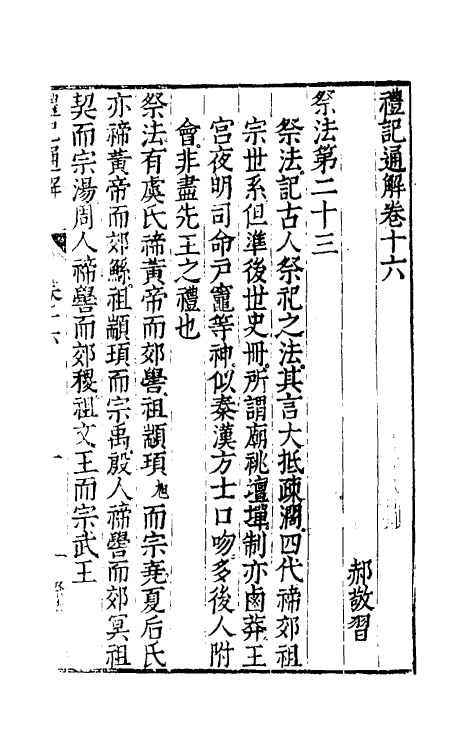 禮記通解卷十六
郝敬習
祭法第二十三
祭法記古人祭祀之法其言大抵疎濶四代禘郊祖
宗世系但準後世史冊所謂廟祧壇墠制亦鹵莽王
宮夜明司命戶竈等神似秦漢方士口吻多後人附
會非盡先王之禮也
祭法有虞氏禘黃帝而郊嚳祖顓頊旭而宗堯夏后氏
亦禘黃帝而郊鯀祖顓頊而宗禹殷人禘嚳而郊冥祖
契而宗湯周人禘嚳而郊稷祖文王而宗武王
禮記通解
卷十六
一